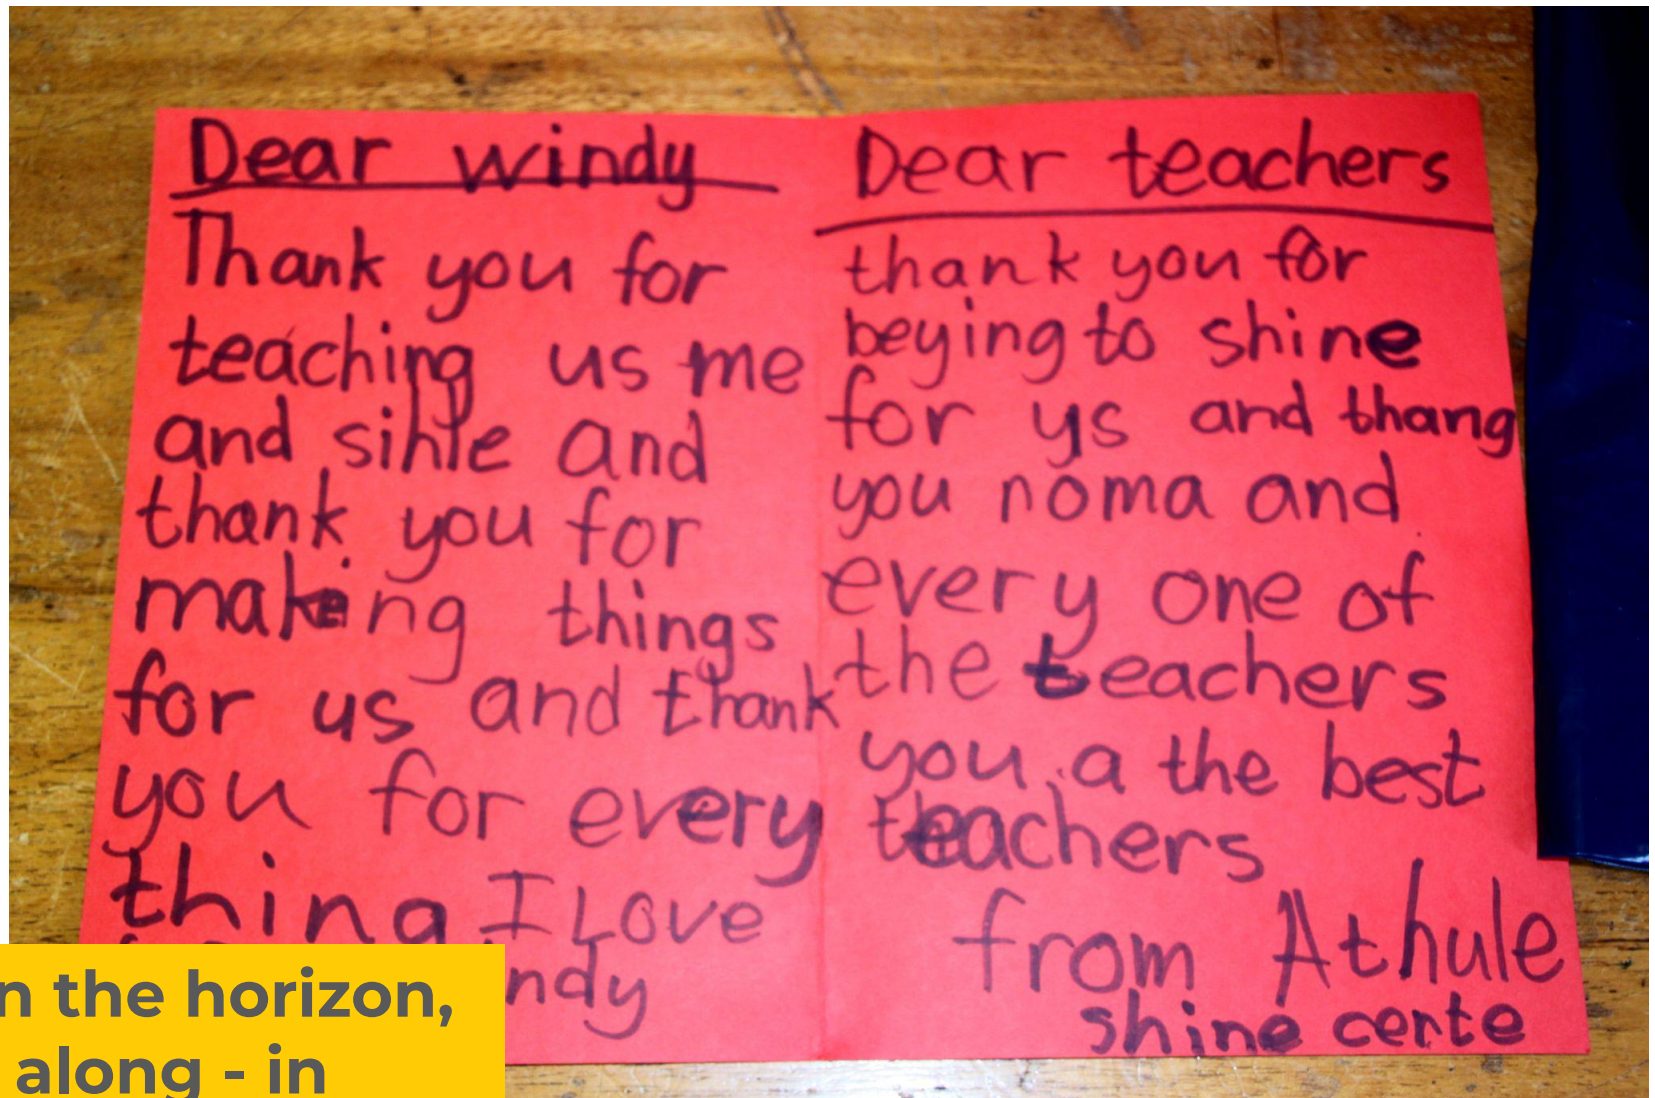 Dear windy
Thank you for
teaching us me
and sihle and
thank you for
making things
for us and thank
you for every
thing I Love
Dear teachers
thank you for
beying to shine
for ys and thang
you noma and
every one of
the teachers
you a the best
teachers
from Athule
shine certe
the horizon,
along - in